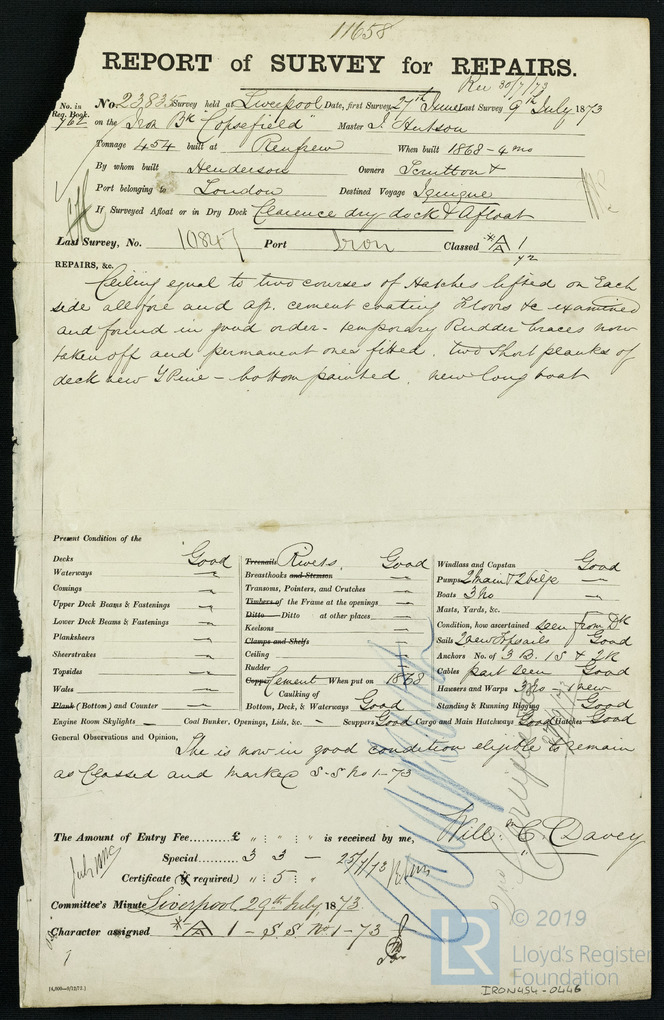 11658
REPORT of SURVEY for REPAIRS.
Rec 30/7/73
No. in Reg. Book. 762
No. 23,835 Survey held at Liverpool Date, first Survey 27th June Last Survey 9th July 1873
on the Iron Bk "Copsefield" Master J. Hutson
Tonnage 454 built at Renfrew When built 1868-4mo
By whom built Henderson Owners Scrutton &
Port belonging to London Destined Voyage Iquique
If Surveyed Afloat or in Dry Dock Clarence dry dock & Afloat
Last Survey, No. 10847 Port Iron Classed *A 1
REPAIRS, &c. Ceiling equal to two courses of Hatches lifted on Each
side all fore and aft. cement coating Floors &c examined
and found in good order - temporary Rudder braces now
taken off and permanent ones fitted. two short planks of
deck new Y Pine - bottom painted. new long boat
Present Condition of the
Decks Good
Waterways "
Comings "
Upper Deck Beams & Fastenings "
Lower Deck Beams & Fastenings "
Planksheers "
Sheerstrakes "
Topsides "
Wales "
Plank (Bottom) and Counter "
Engine Room Skylights – Coal Bunker, Openings, Lids, &c. –
Treenails Rivets, Good
Breasthooks and Stemson "
Transoms, Pointers, and Crutches "
Timbers of the Frame at the openings "
Ditto Ditto at other places "
Keelsons "
Clamps and Shelfs
Ceiling "
Rudder "
Copper Cement When put on 1868
Caulking of
Bottom, Deck, & Waterways Good
Scuppers Good Cargo and Main Hatchways Good Hatches Good
Windlass and Capstan Good
Pumps 2 main & 2 bilge "
Boats 3 No "
Masts, Yards, &c.
Condition, how ascertained seen from Dk
Sails 2 new Topsails Good
Anchors No. of 3 B. 1 S & 2 K
Cables part seen Good
Hausers and Warps 3 No - 1 new
Standing & Running Rigging Good
General Observations and Opinion, She is now in good condition eligible to remain
as Classed and marked S-S No 1-73
The Amount of Entry Fee.......... £ " : " : " is received by me,
Will. C. Davey
Special.......... 3 3 – 25/7/73
Certificate (if required) " : 5 : "
Committee's Minute Liverpool 29th July, 1873
Character assigned *A 1 - S.S No 1-73
[4,000—9/12/72.]
© 2019
LR
Lloyd's Register
Foundation
IRON454-0446